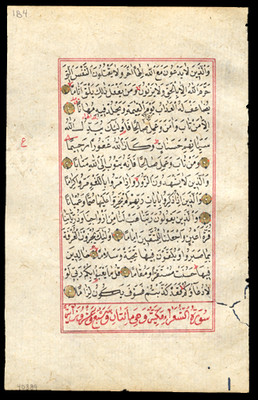 184
وَالَّذِينَ لَا يَدْعُونَ مَعَ اللّٰهِ اِلٰهًا اٰخَرَ وَلَا يَقْتُلُونَ النَّفْسَ الَّتِي
حَرَّمَ اللّٰهُ اِلَّا بِالْحَقِّ وَلَا يَزْنُونَ وَمَنْ يَفْعَلْ ذٰلِكَ يَلْقَ اَثَامًا
يُضَاعَفْ لَهُ الْعَذَابُ يَوْمَ الْقِيٰمَةِ وَيَخْلُدْ فِيهِ مُهَانًا
اِلَّا مَنْ تَابَ وَاٰمَنَ وَعَمِلَ عَمَلًا صَالِحًا فَاُولٰئِكَ يُبَدِّلُ اللّٰهُ
سَيِّئَاتِهِمْ حَسَنَاتٍ وَكَانَ اللّٰهُ غَفُورًا رَحِيمًا
وَمَنْ تَابَ وَعَمِلَ صَالِحًا فَاِنَّهُ يَتُوبُ اِلَى اللّٰهِ مَتَابًا
وَالَّذِينَ لَا يَشْهَدُونَ الزُّورَ وَاِذَا مَرُّوا بِاللَّغْوِ مَرُّوا كِرَامًا
وَالَّذِينَ اِذَا ذُكِّرُوا بِاٰيَاتِ رَبِّهِمْ لَمْ يَخِرُّوا عَلَيْهَا صُمًّا وَعُمْيَانًا
وَالَّذِينَ يَقُولُونَ رَبَّنَا هَبْ لَنَا مِنْ اَزْوَاجِنَا وَذُرِّيَّاتِنَا
قُرَّةَ اَعْيُنٍ وَاجْعَلْنَا لِلْمُتَّقِينَ اِمَامًا اُولٰئِكَ يُجْزَوْنَ الْغُرْفَةَ
بِمَا صَبَرُوا وَيُلَقَّوْنَ فِيهَا تَحِيَّةً وَسَلَامًا خَالِدِينَ
فِيهَا حَسُنَتْ مُسْتَقَرًّا وَمُقَامًا قُلْ مَا يَعْبَؤُا بِكُمْ رَبِّي لَوْ
لَا دُعَاؤُكُمْ فَقَدْ كَذَّبْتُمْ فَسَوْفَ يَكُونُ لِزَامًا
سورة الشعراء مكية وهي مائتان وسبع وعشرون آية
ع